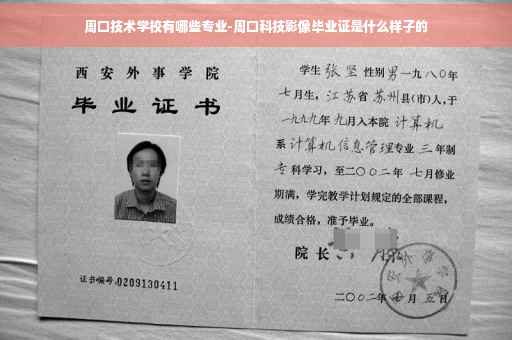 周口技术学校有哪些专业-周口科技影像毕业证是什么样子的
西安外事学院
毕业证书
证书编号:0209130411
学生 张坚 性别 男 一九八〇年
七月生，江苏省 苏州县(市)人,于
一九九九年 九月入本院 计算机
系 计算机信息管理专业 三 年制
专 科学习，至二〇〇二年 七月修业
期满，学完教学计划规定的全部课程，
成绩合格，准予毕业。
院长
二〇〇二年 月 五 日